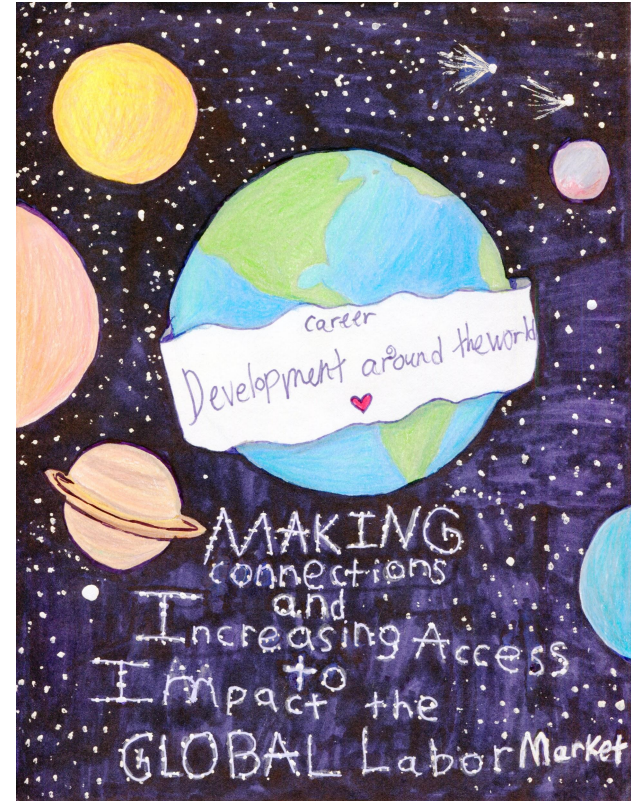 career
Development around the world
MAKING
connections
and
Increasing Access
to
Impact the
GLOBAL Labor Market